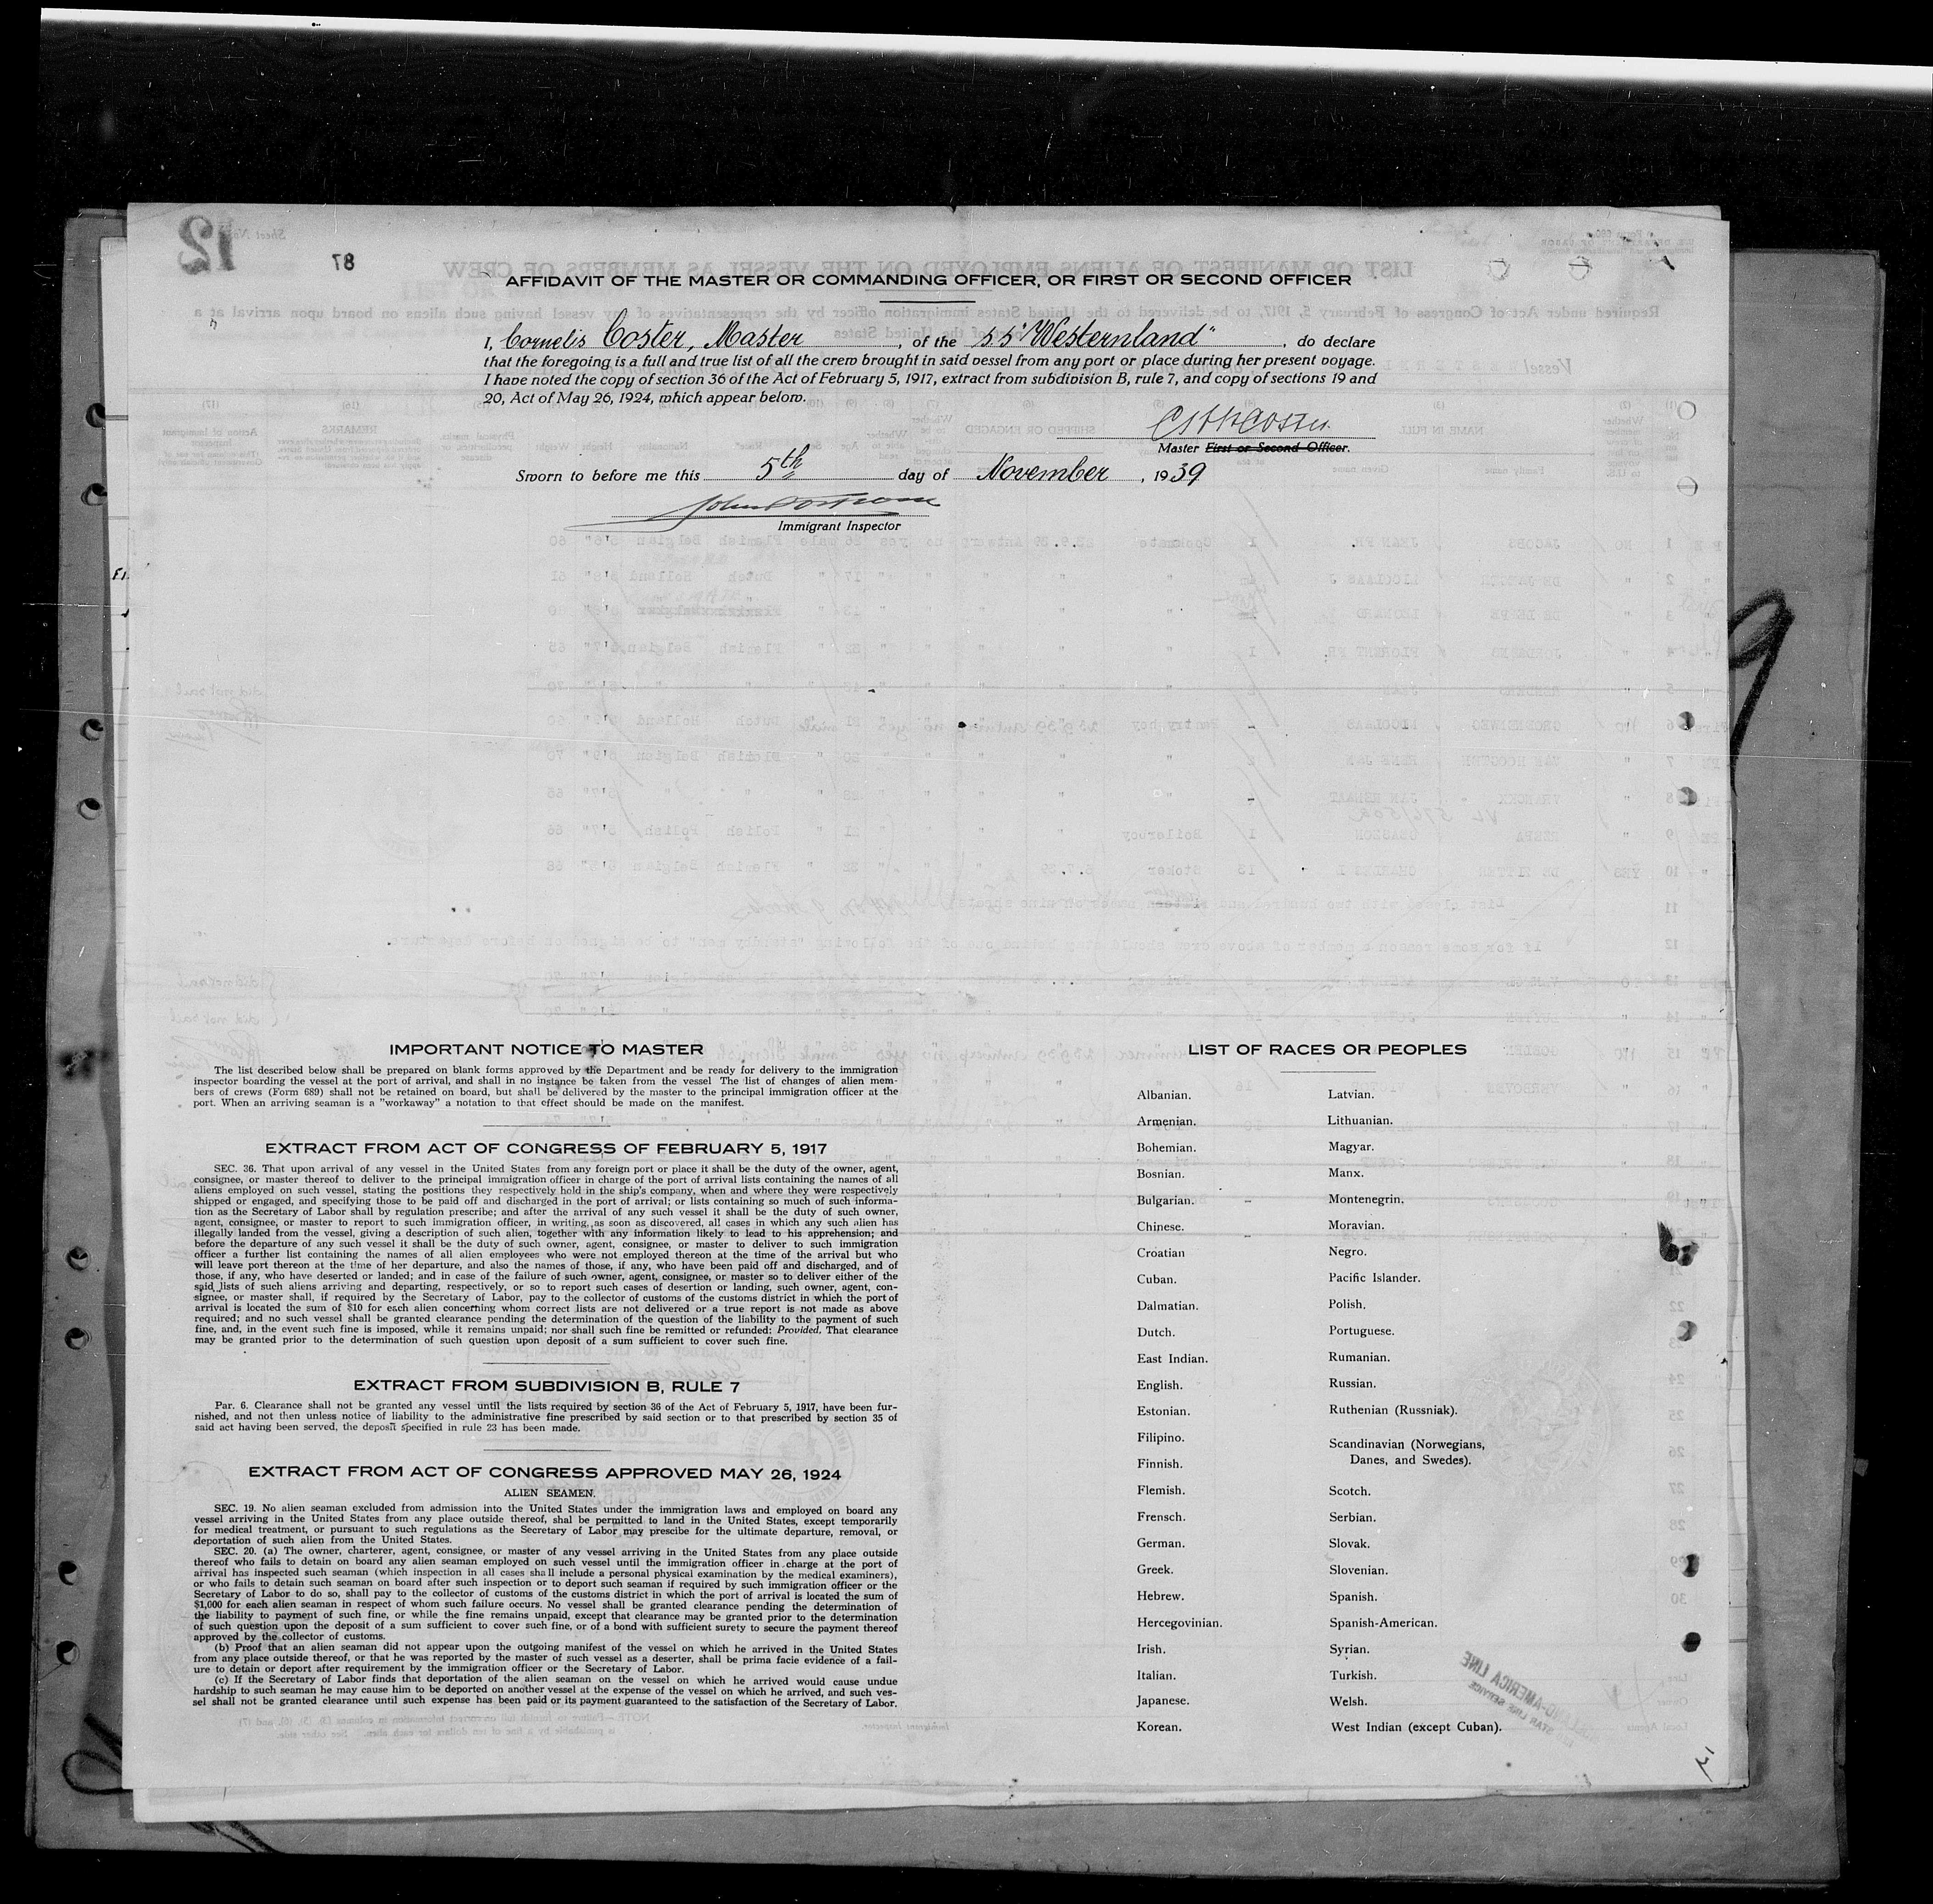 87
AFFIDAVIT OF THE MASTER OR COMMANDING OFFICER, OR FIRST OR SECOND OFFICER
I, Cornelis Coster, Master, of the SS "Westernland", do declare
that the foregoing is a full and true list of all the crew brought in said vessel from any port or place during her present voyage.
I have noted the copy of section 36 of the Act of February 5, 1917, extract from subdivision B, rule 7, and copy of sections 19 and
20, Act of May 26, 1924, which appear below.
Master First or Second Officer.
Sworn to before me this 5th day of November, 1939
Immigrant Inspector
IMPORTANT NOTICE TO MASTER
The list described below shall be prepared on blank forms approved by the Department and be ready for delivery to the immigration
inspector boarding the vessel at the port of arrival, and shall in no instance be taken from the vessel The list of changes of alien mem-
bers of crews (Form 689) shall not be retained on board, but shall be delivered by the master to the principal immigration officer at the
port. When an arriving seaman is a "workaway" a notation to that effect should be made on the manifest.
EXTRACT FROM ACT OF CONGRESS OF FEBRUARY 5, 1917
SEC. 36. That upon arrival of any vessel in the United States from any foreign port or place it shall be the duty of the owner, agent,
consignee, or master thereof to deliver to the principal immigration officer in charge of the port of arrival lists containing the names of all
aliens employed on such vessel, stating the positions they respectively hold in the ship's company, when and where they were respectively
shipped or engaged, and specifying those to be paid off and discharged in the port of arrival; or lists containing so much of such informa-
tion as the Secretary of Labor shall by regulation prescribe; and after the arrival of any such vessel it shall be the duty of such owner,
agent, consignee, or master to report to such immigration officer, in writing, as soon as discovered, all cases in which any such alien has
illegally landed from the vessel, giving a description of such alien, together with any information likely to lead to his apprehension; and
before the departure of any such vessel it shall be the duty of such owner, agent, consignee, or master to deliver to such immigration
officer a further list containing the names of all alien employees who were not employed thereon at the time of the arrival but who
will leave port thereon at the time of her departure, and also the names of those, if any, who have been paid off and discharged, and of
those, if any, who have deserted or landed; and in case of the failure of such owner, agent, consignee, or master so to deliver either of the
said lists of such aliens arriving and departing, respectively, or so to report such cases of desertion or landing, such owner, agent, con-
signee, or master shall, if required by the Secretary of Labor, pay to the collector of customs of the customs district in which the port of
arrival is located the sum of $10 for each alien concerning whom correct lists are not delivered or a true report is not made as above
required; and no such vessel shall be granted clearance pending the determination of the question of the liability to the payment of such
fine, and, in the event such fine is imposed, while it remains unpaid; nor shall such fine be remitted or refunded; Provided. That clearance
may be granted prior to the determination of such question upon deposit of a sum sufficient to cover such fine.
EXTRACT FROM SUBDIVISION B, RULE 7
Par. 6. Clearance shall not be granted any vessel until the lists required by section 36 of the Act of February 5, 1917, have been fur-
nished, and not then unless notice of liability to the administrative fine prescribed by said section or to that prescribed by section 35 of
said act having been served, the deposit specified in rule 23 has been made.
EXTRACT FROM ACT OF CONGRESS APPROVED MAY 26, 1924
ALIEN SEAMEN.
SEC. 19. No alien seaman excluded from admission into the United States under the immigration laws and employed on board any
vessel arriving in the United States from any place outside thereof, shal be permitted to land in the United States, except temporarily
for medical treatment, or pursuant to such regulations as the Secretary of Labor may prescibe for the ultimate departure, removal, or
deportation of such alien from the United States.
SEC. 20. (a) The owner, charterer, agent, consignee, or master of any vessel arriving in the United States from any place outside
thereof who fails to detain on board any alien seaman employed on such vessel until the immigration officer in charge at the port of
arrival has inspected such seaman (which inspection in all cases shall include a personal physical examination by the medical examiners),
or who fails to detain such seaman on board after such inspection or to deport such seaman if required by such immigration officer or the
Secretary of Labor to do so, shall pay to the collector of customs of the customs district in which the port of arrival is located the sum of
$1,000 for each alien seaman in respect of whom such failure occurs. No vessel shall be granted clearance pending the determination of
the liability to payment of such fine, or while the fine remains unpaid, except that clearance may be granted prior to the determination
of such question upon the deposit of a sum sufficient to cover such fine, or of a bond with sufficient surety to secure the payment thereof
approved by the collector of customs.
(b) Proof that an alien seaman did not appear upon the outgoing manifest of the vessel on which he arrived in the United States
from any place outside thereof, or that he was reported by the master of such vessel as a deserter, shall be prima facie evidence of a fail-
ure to detain or deport after requirement by the immigration officer or the Secretary of Labor.
(c) If the Secretary of Labor finds that deportation of the alien seaman on the vessel on which he arrived would cause undue
hardship to such seaman he may cause him to be deported on another vessel at the expense of the vessel on which he arrived, and such ves-
sel shall not be granted clearance until such expense has been paid or its payment guaranteed to the satisfaction of the Secretary of Labor.
LIST OF RACES OR PEOPLES
Albanian.
Armenian.
Bohemian.
Bosnian.
Bulgarian.
Chinese.
Croatian
Cuban.
Dalmatian.
Dutch.
East Indian.
English.
Estonian.
Filipino.
Finnish.
Flemish.
Frensch.
German.
Greek.
Hebrew.
Hercegovinian.
Irish.
Italian.
Japanese.
Korean.
Latvian.
Lithuanian.
Magyar.
Manx.
Montenegrin.
Moravian.
Negro.
Pacific Islander.
Polish.
Portuguese.
Rumanian.
Russian.
Ruthenian (Russniak).
Scandinavian (Norwegians,
Danes, and Swedes).
Scotch.
Serbian.
Slovak.
Slovenian.
Spanish.
Spanish-American.
Syrian.
Turkish.
Welsh.
West Indian (except Cuban).